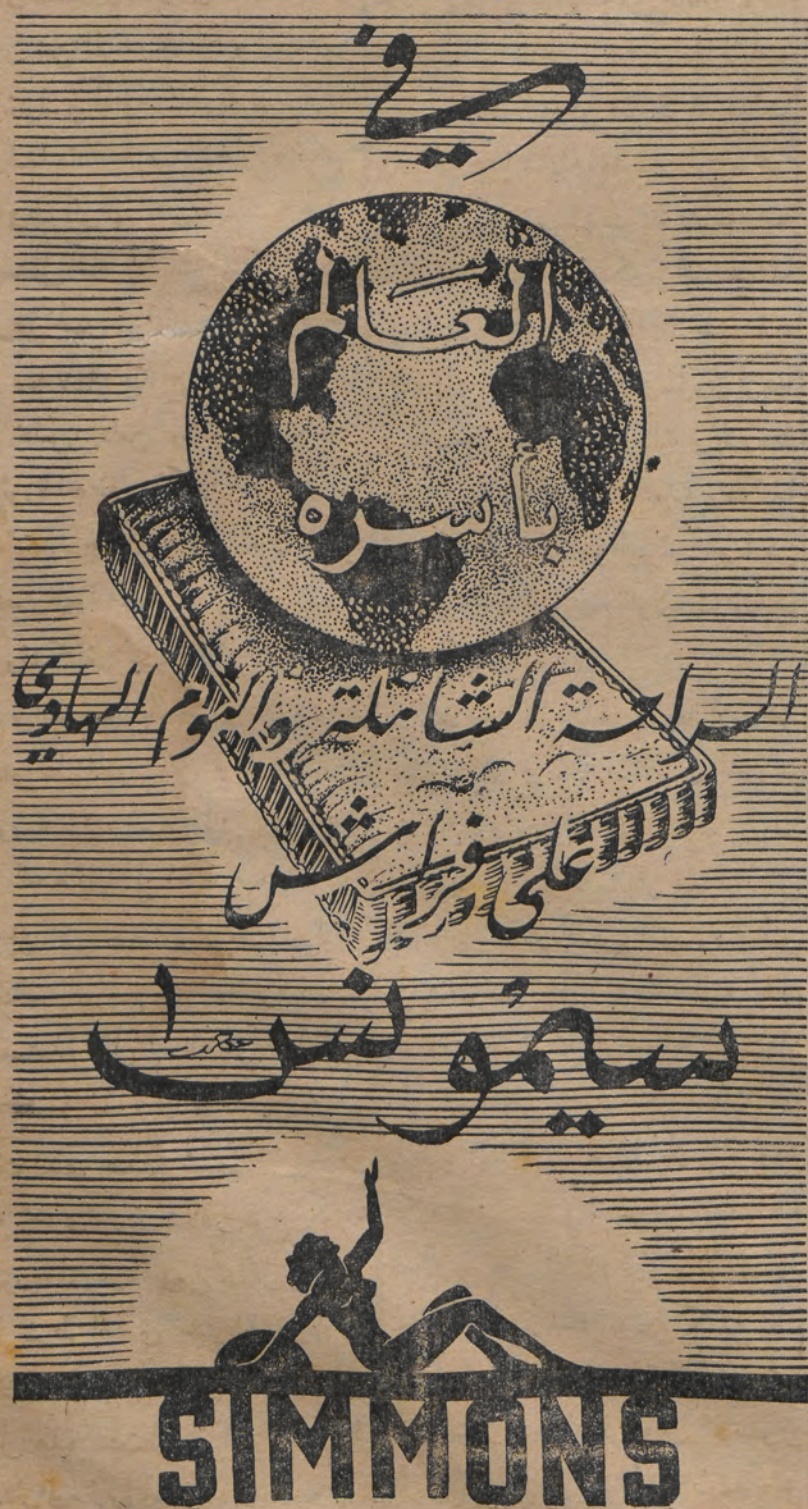 في
العالم
بأسره
الراحة الشاملة والنوم الهادي
على فراش
سيمونس !
SIMMONS